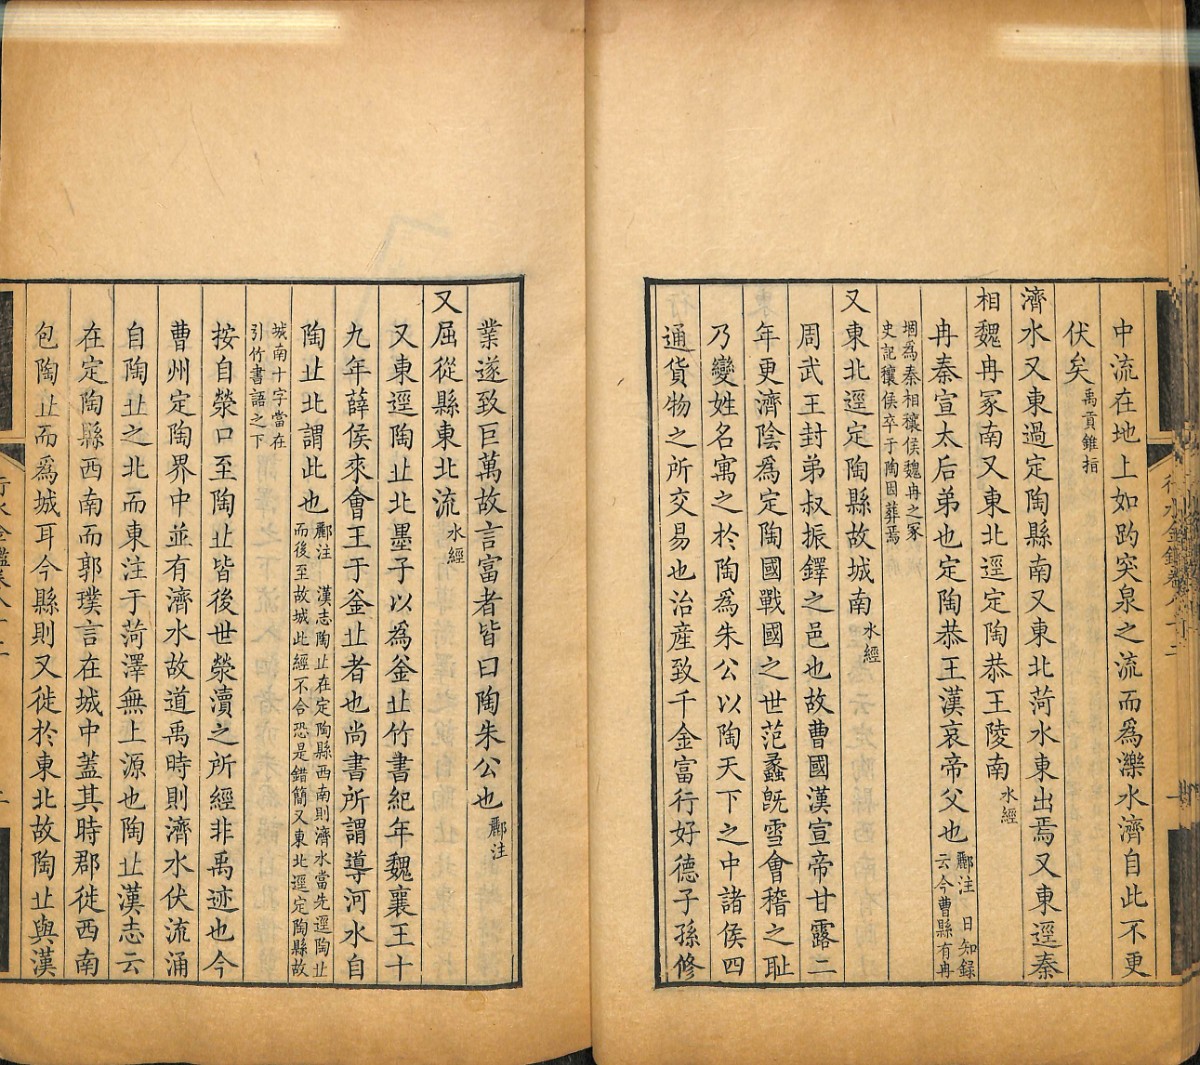 中流在地上如趵突泉之流而爲濼水濟自此不更
伏矣禹貢錐指
濟水又東過定陶縣南又東北菏水東出焉又東逕秦
相魏冉冢南又東北逕定陶恭王陵南水經
冉秦宣太后弟也定陶恭王漢哀帝父也酈注 日知録
云今曹縣有冉
堌爲秦相穰侯魏冉之冢
史記穰侯卒于陶因葬焉
又東北逕定陶縣故城南水經
周武王封弟叔振鐸之邑也故曹國漢宣帝甘露二
年更濟陰爲定陶國戰國之世范蠡旣雪會稽之耻
乃變姓名寓之於陶爲朱公以陶天下之中諸侯四
通貨物之所交易也治産致千金富行好德子孫修
業遂致巨萬故言富者皆曰陶朱公也酈注
又屈從縣東北流水經
又東逕陶㐀北墨子以爲釜㐀竹書紀年魏襄王十
九年薛侯來會王于釜㐀者也尚書所謂導河水自
陶㐀北謂此也酈注 漢志陶㐀在定陶縣西南則濟水當先逕陶㐀
而後至故城此經不合恐是錯簡又東北逕定陶縣故
城南十字當在
引竹書語之下
按自滎口至陶㐀皆後世滎瀆之所經非禹迹也今
曹州定陶界中並有濟水故道禹時則濟水伏流涌
自陶㐀之北而東注于菏澤無上源也陶㐀漢志云
在定陶縣西南而郭璞言在城中蓋其時郡徙西南
包陶㐀而爲城耳今縣則又徙於東北故陶㐀與漢